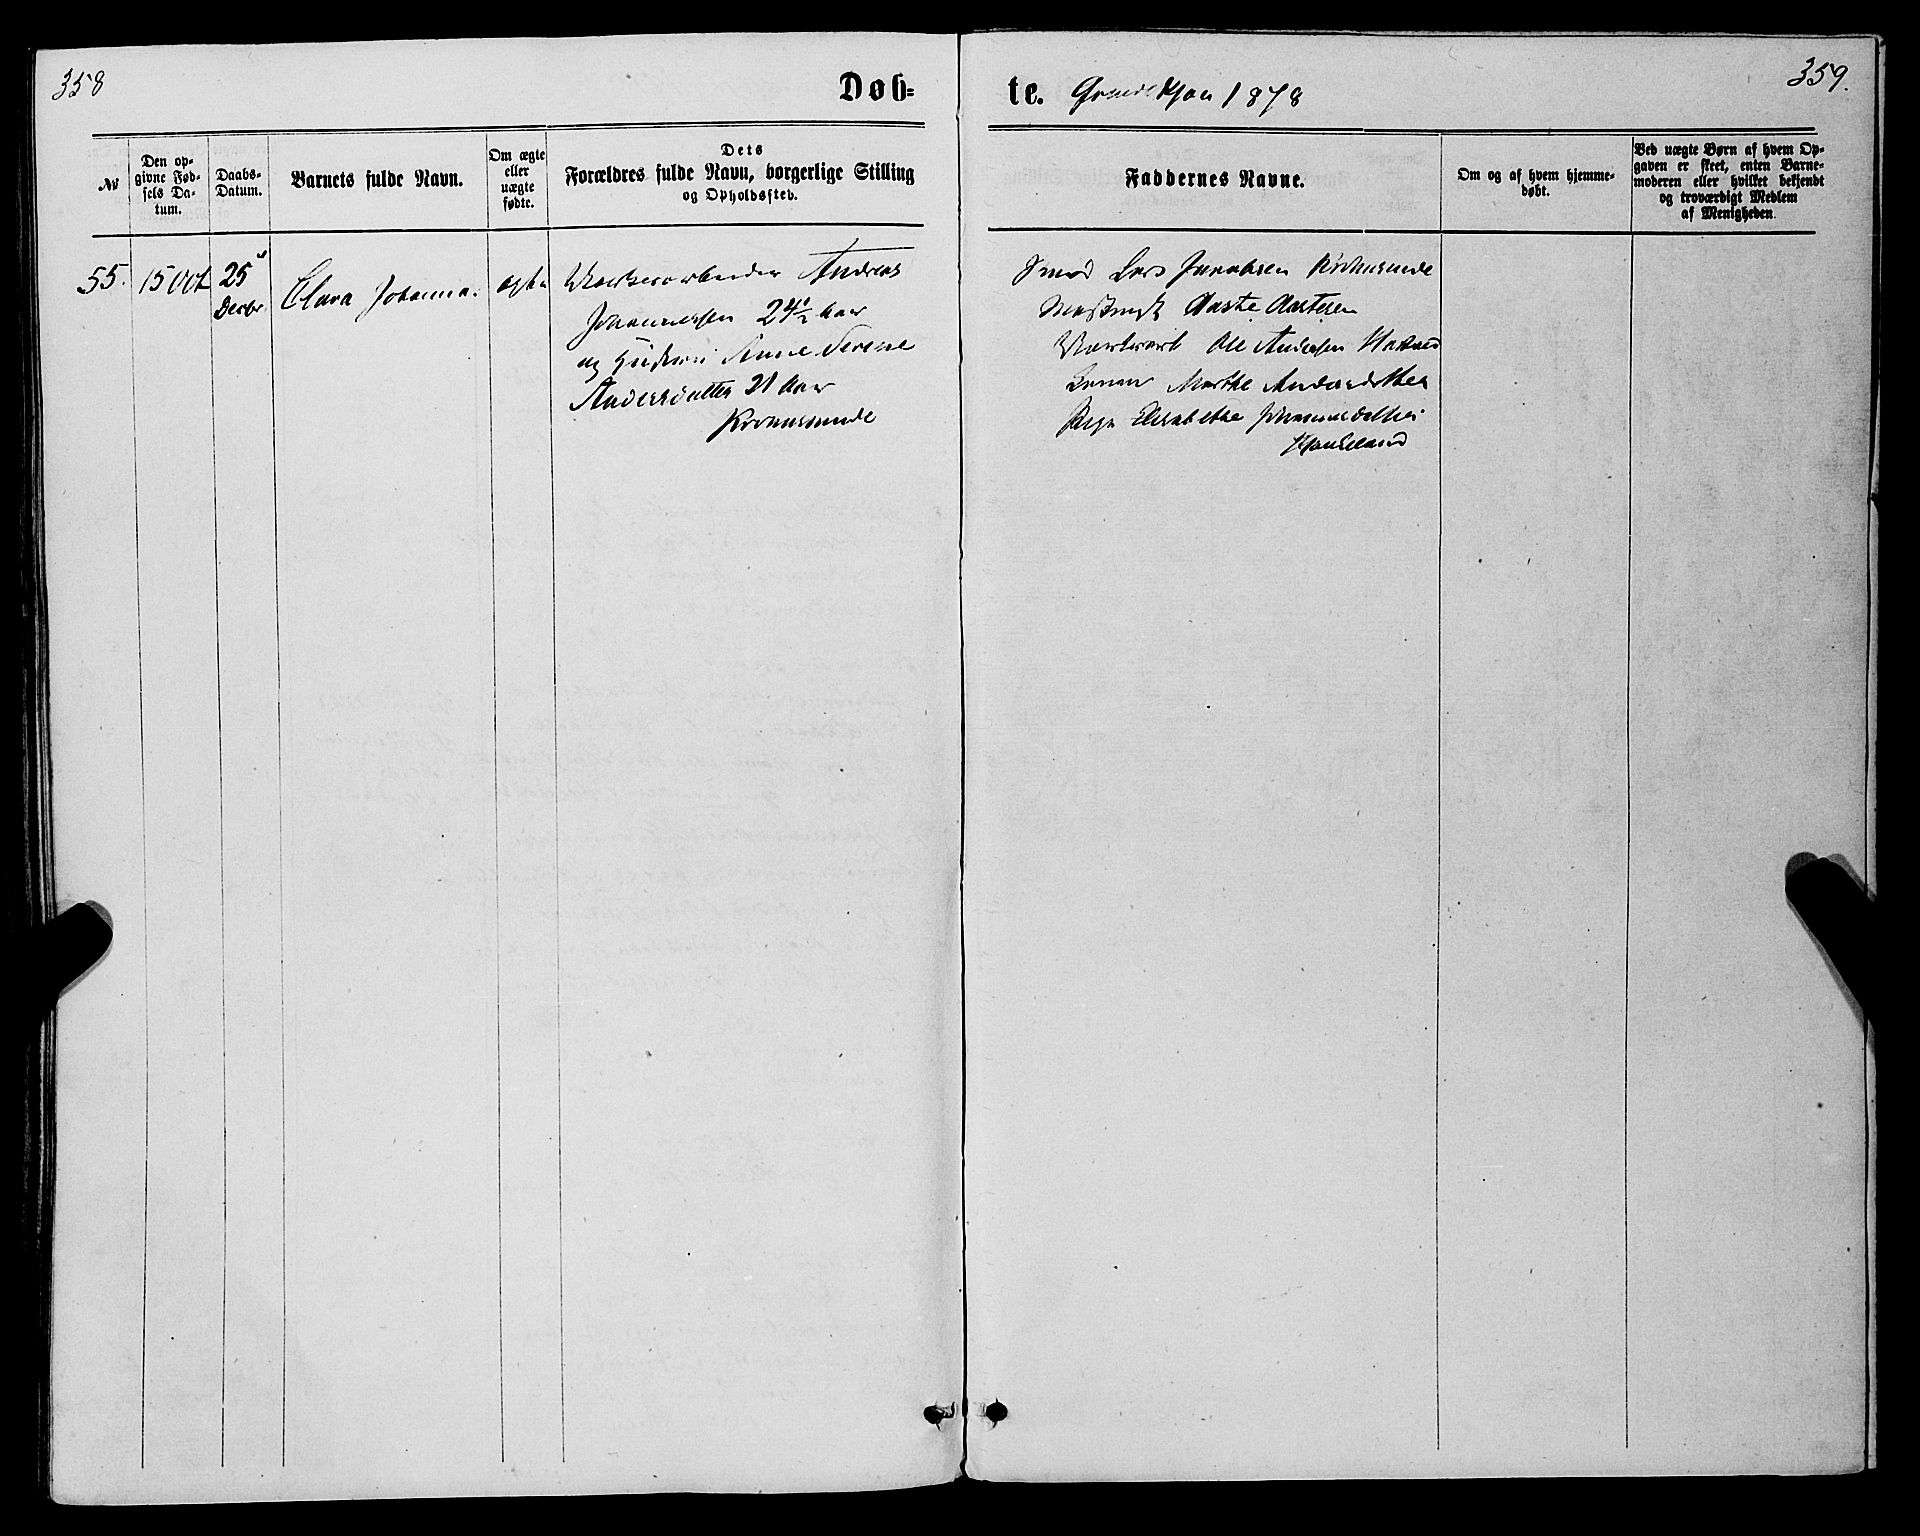 358
Døb=
te. 1878
359.
№
Den op=
givne Fød=
sels Da=
tum.
Daabs=
Datum.
Barnets fulde Navn.
Om ægte
eller
uægte
fødte.
Dets
Forældres fulde Navn, borgerlige Stilling
og Opholdssted.
Faddernes Navne.
Om og af hvem hjemme=
døbt.
Ved uægte Børn af hvem Op=
gaven er skeet, enten Barne=
moderen eller hvilket bekjendt
og troværdigt Medlem
af Menigheden.
55. 15 Oct 25
Decbr
Clara Johanna.
ægte
Værksarbeider Andreas
Johannessen 24½ Aar
og Hustru Anne Serene
Andersdatter 21 Aar
Smed Lars Jacobsen
Aaste Aastesen
Ole Andersen
Marthe Andersdatter
Pige Elisabethe